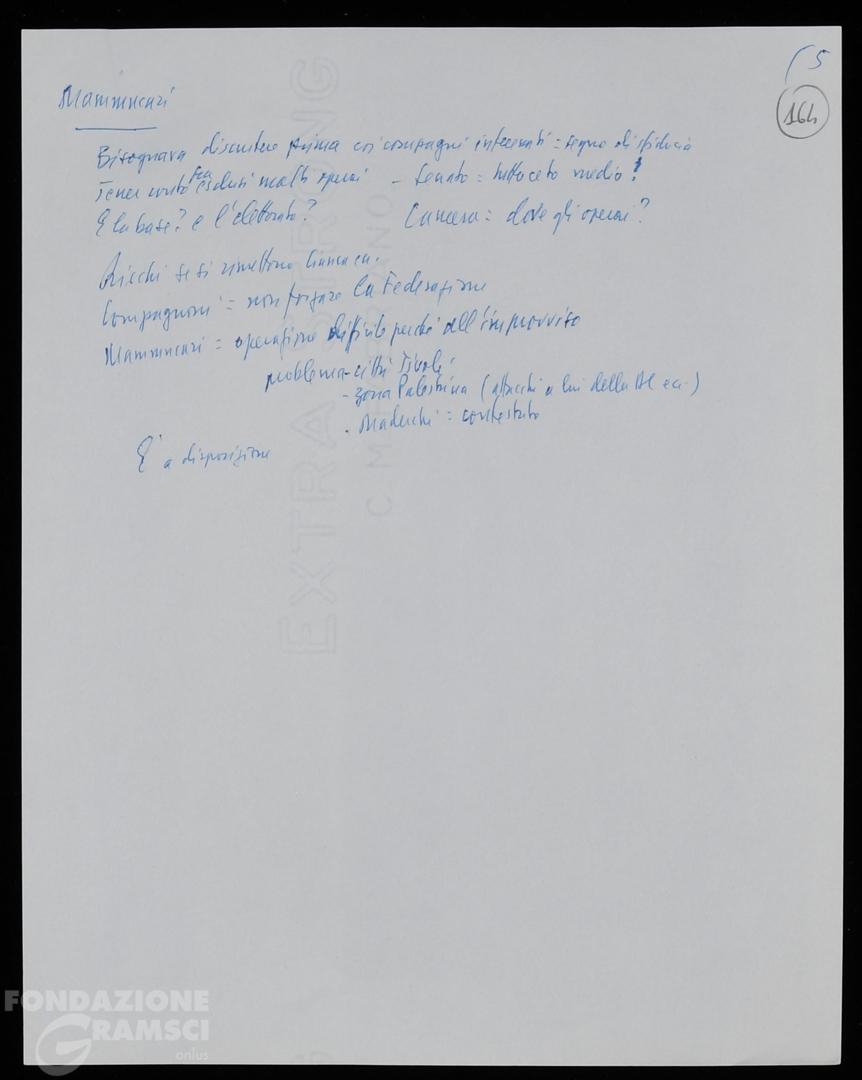 ( 5
164
Mammucari
Bisognava discutere prima coi compagni interessati = segno di sfiducia
Tener conto tra esclusi molti operai - Senato = tutto ceto medio?
E la base? e l'elettorato? Camera = dove gli operai?
Ricchi se si rimettono
Compagnoni = non forzare la Federazione
Mammucari = operazione difficile perché all'improvviso
problema - città Tivoli
- zona Palestrina (attacchi a lui della ecc.)
. Maderchi = contestato
E' a disposizione
EXTRA STRONG
FONDAZIONE
GRAMSCI
onlus